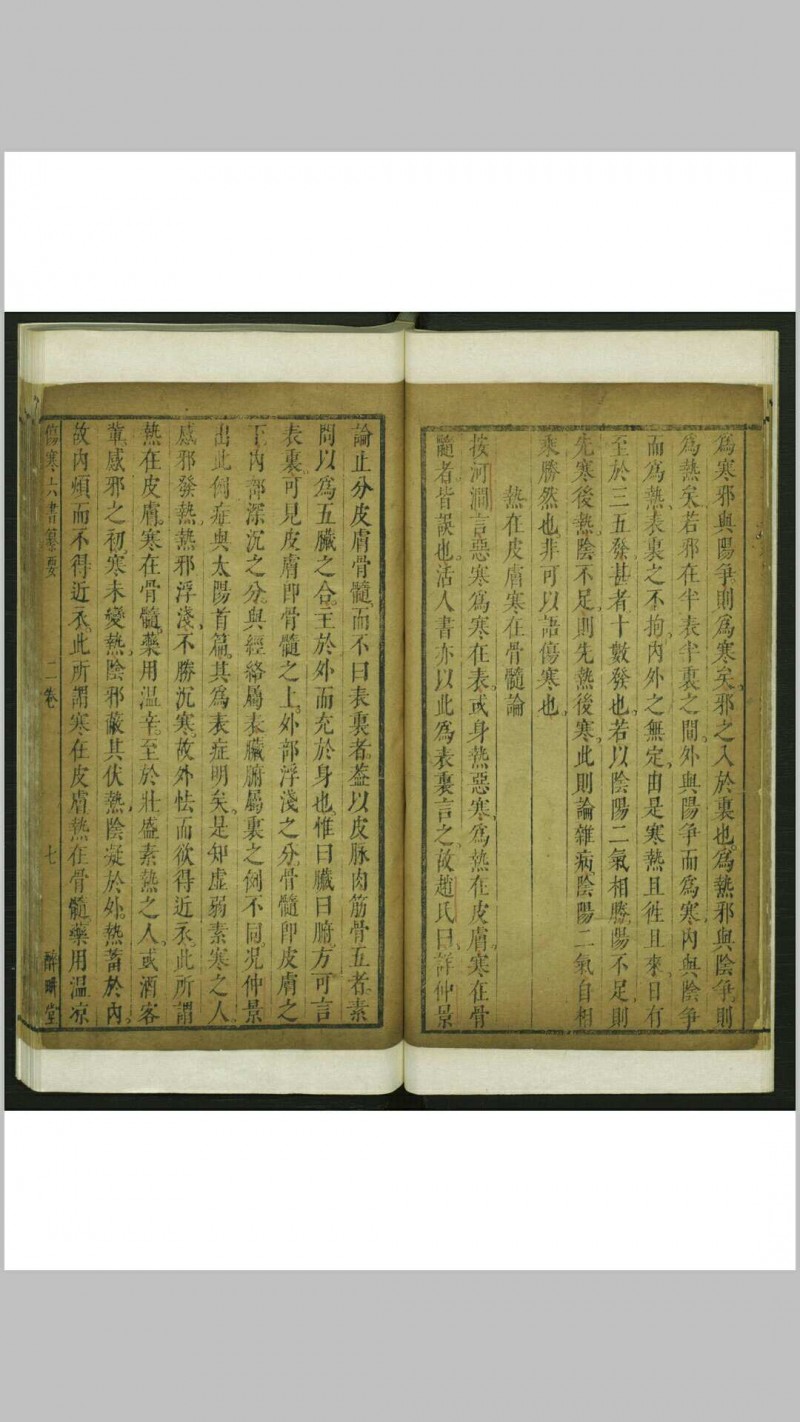 為寒邪與陽爭則為寒矣邪之入於裏也為熱邪與陰爭則
為熱矣若邪在半表半裏之間外與陽爭而為寒內與陰爭
而為熱表裏之不拘內外之無定由是寒熱且徃且來日有
至於三五發甚者十數發也若以陰陽二氣相勝陽不足則
先寒後熱陰不足則先熱後寒此則論雜病陰陽二氣自相
乘勝然也非可以語傷寒也
熱在皮膚寒在骨髓論
按河澗言惡寒為寒在表或身熱惡寒為熱在皮膚寒在骨
髓者皆誤也活人書亦以此為表裏言之故趙氏曰詳仲景
論止分皮膚骨髓而不曰表裏者葢以皮脉肉筋骨五者素
問以為五臟之合主於外而充於身也惟曰臟曰腑方可言
表裏可見皮膚即骨髓之上外部浮淺之分骨髓即皮膚之
下內部深沉之分與經絡屬表臟腑屬裏之例不同况仲景
出此例症與太陽首篇其為表症明矣是知虛弱素寒之人
感邪發熱熱邪浮淺不勝沉寒故外怯而欲得近衣此所謂
熱在皮膚寒在骨髓藥用温辛至於壯盛素熱之人或酒客
軰感邪之初寒未變熱陰邪蔽其伏熱陰凝於外熱蓄於內
故內煩而不得近衣此所謂寒在皮膚熱在骨髓藥用温凉
傷寒六書纂要 二卷 七 醉畊堂